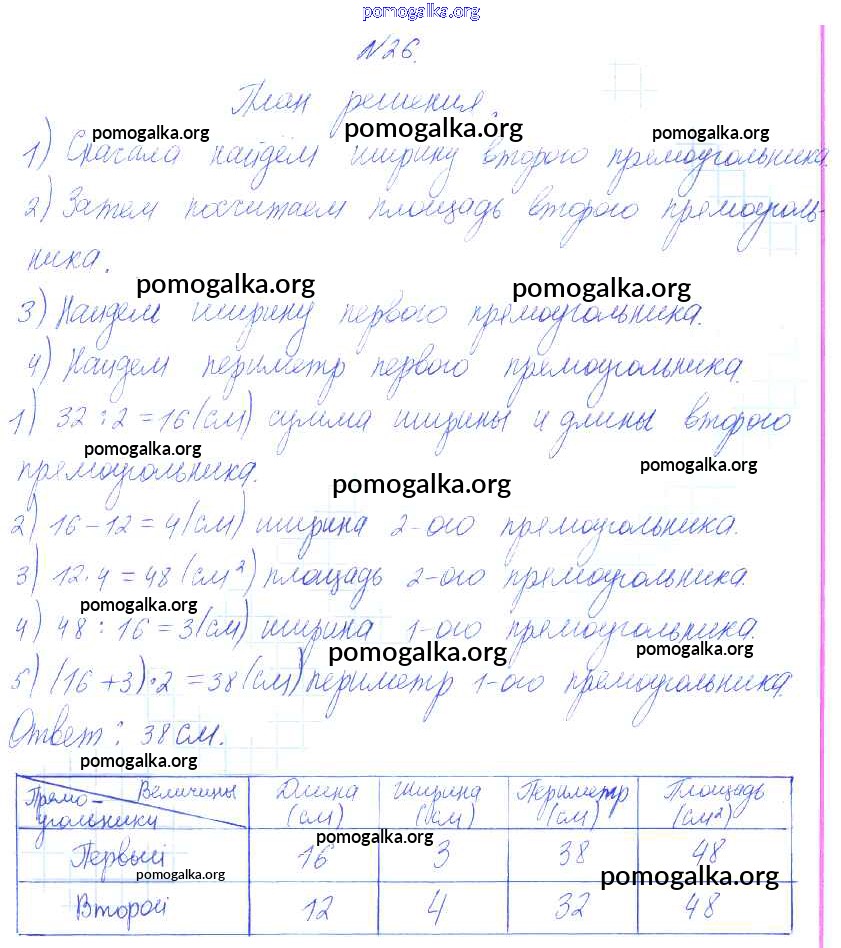 pomogalka.org
№26.
План решения.
pomogalka.org pomogalka.org pomogalka.org
1) Сначала найдём ширину второго прямоугольника.
2) Затем посчитаем площадь второго прямоуголь-
ника.
pomogalka.org pomogalka.org
3) Найдем ширину первого прямоугольника.
4) Найдем периметр первого прямоугольника.
1) 32 : 2 = 16 (см) сумма ширины и длины второго
pomogalka.org pomogalka.org
прямоугольника.
pomogalka.org
2) 16 - 12 = 4 (см) ширина 2-ого прямоугольника.
3) 12 · 4 = 48 (см²) площадь 2-ого прямоугольника.
pomogalka.org
4) 48 : 16 = 3 (см) ширина 1-ого прямоугольника.
pomogalka.org pomogalka.org
5) (16 + 3) · 2 = 38 (см) периметр 1-ого прямоугольника.
Ответ: 38 см.
pomogalka.org
Прямо- Величины Длина Ширина Периметр Площадь
угольники (см) (см) (см) (см²)
pomogalka.org
Первый 16 3 38 48
pomogalka.org pomogalka.org
Второй 12 4 32 48